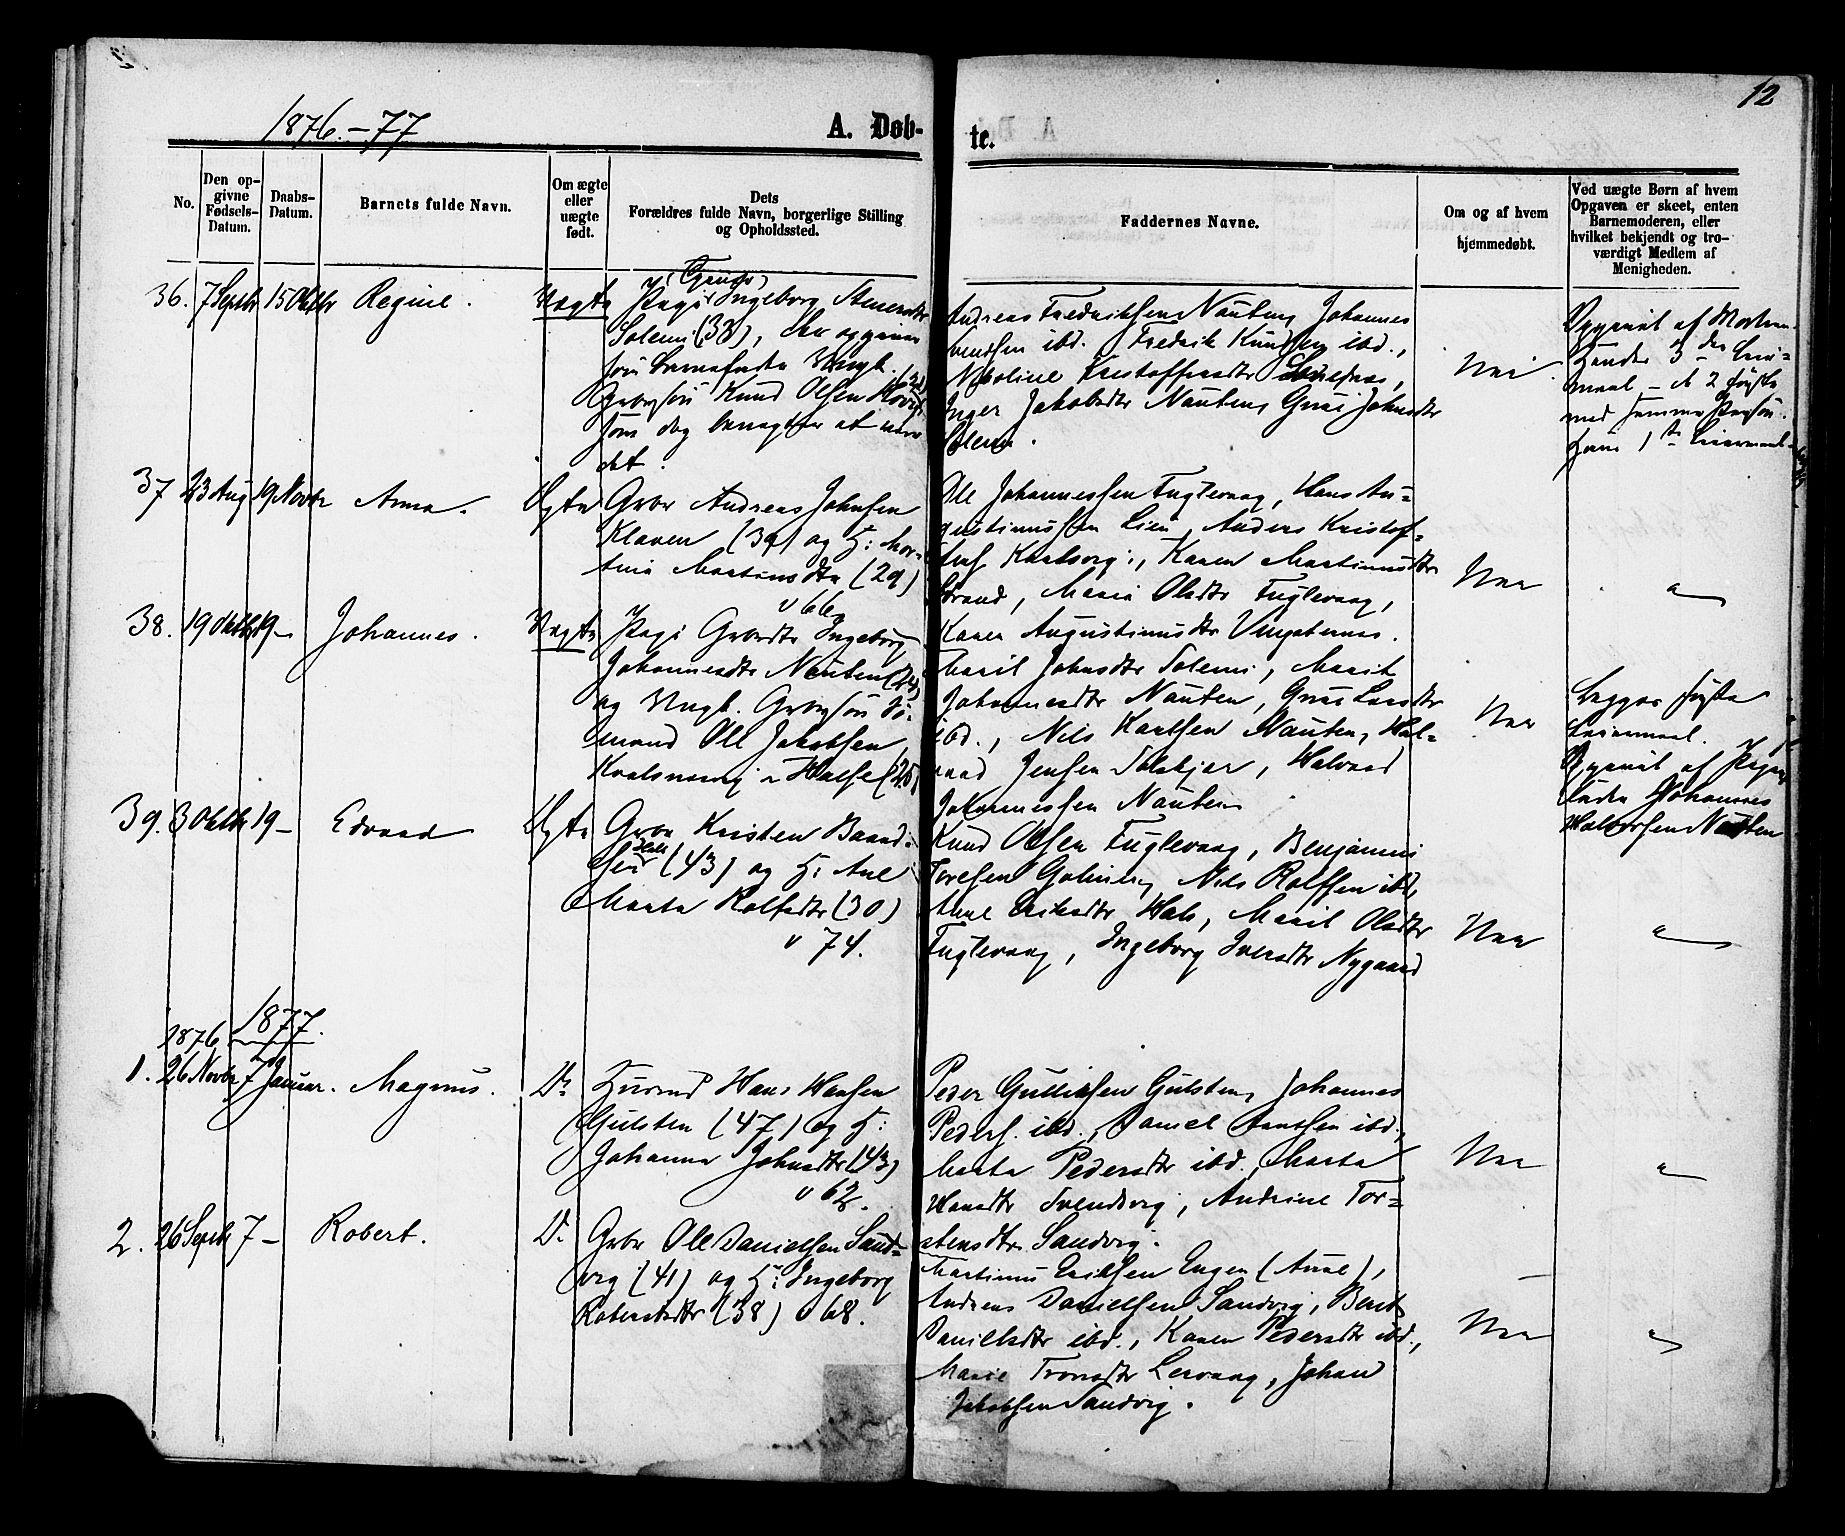 12
1876.-77
A. Døb-
te.
No.
Den op-
givne
Fødsels-
Datum.
Daabs-
Datum.
Barnets fulde Navn.
Om ægte
eller
uægte
født.
Dets
Forældres fulde Navn, borgerlige Stilling
og Opholdssted.
Faddernes Navne.
Om og af hvem
hjemmedøbt.
Ved uægte Børn af hvem
Opgaven er skeet, enten
Barnemoderen, eller
hvilket bekjendt og tro-
værdigt Medlem af
Menigheden.
36. 7 Septbr 15 Oktbr Regine. Uægte
Pige Ingeborg
Solem (33), der opgiver
som Barnefader Ungk.
Gbrsøn Knud Olsen
som dog benægter at være
det.
Andreas Fredriksen Nausten, Johannes
ibd. Fredrik Knudsen ibd.,
Nikoline Kristoffersdtr
Inger Jakobsdtr Nausten, Guri Johnsdtr
Solem.
Nei
Opgivet af Moderen.
37 23 Aug 19 Novbr Anna. Ægte
Gbr Andreas Johnsen
Klaven (39) og H:
Martinsdtr (29)
v 66
Ole Johannessen Fuglevaag, Hans Au-
gustinussen Lien, Anders Kristof-
Karen Martinusdtr
Strand, Marie Olsdtr Fuglevaag,
Karen Augustinusdtr
Nei
"
38. 19 Oktbr 19 - Johannes. Uægte
Pige Gbrdtr Ingeborg
Johannesdtr Nausten (24)
og Ungk. Gbrsøn Sø-
mand Ole Jakobsen
i Halse (25)
Marit Johnsdtr Solem, Marit
Johannesdtr Nausten, Guri Larsdtr
ibd., Nils Knutsen Nausten, Hal-
vard Jensen Halvard
Johannessen Nausten
Nei
Begges første
Leiermaal.
Opgivet af Pigens
Fader Johannes
Halvorsen Nausten
39. 3 Oktbr 19 - Edvard Ægte
Gbr Kristen Baard-
sen Hals (43) og H: Ane
Marta Rolfsdtr (30)
v 74.
Knud Olsen Fuglevaag, Benjamin
Toresen Nils Rolfsen ibd.
Ane Eriksdtr Hals, Marit Olsdtr
Fuglevaag, Ingeborg Iversdtr Nygaard
Nei
"
1877.
1876
1. 26 Novbr 7 Januar. Magnus. Do
Husmd Hans Hansen
Gulsten (47) og H:
Johanna Johnsdtr (43)
v 62.
Peder Gulliksen Gulsten, Johannes
Peders. ibd., Daniel ibd.,
Marta Pedersdtr ibd., Marta
Hansdtr Svendsvig, Andrine Tor-
stensdtr Sandvig.
Nei
"
2. 26 Septbr 7 - Robert. Do
Gbr Ole Danielsen Sand-
vig (41) og H: Ingeborg
Robertsdtr (38) v 68.
Martinus Eriksen Engen (Aure),
Andreas Danielsen Sandvig, Berit
Danielsdtr ibd., Karen Pedersdtr ibd.,
Marie Tronsdtr Lervaag, Johan
Jakobsen Sandvig.
Nei
"